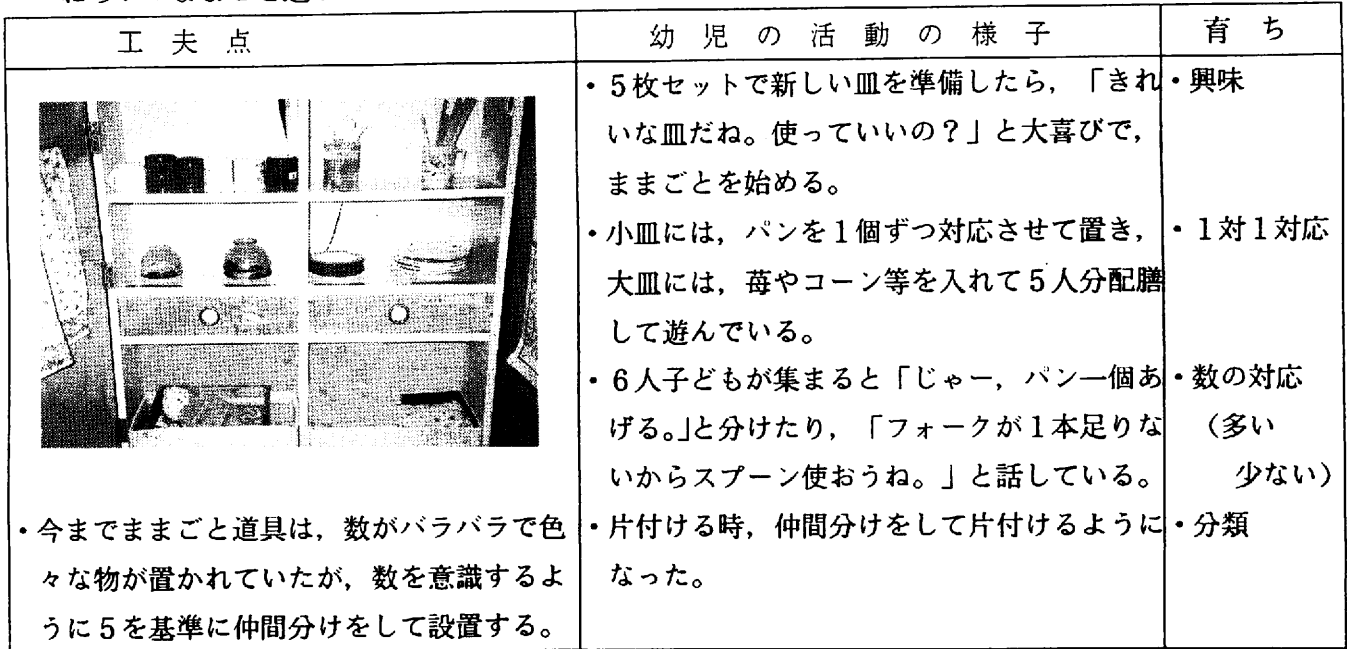 工夫点
幼児の活動の様子
育ち
・今までままごと道具は，数がバラバラで色
々な物が置かれていたが，数を意識するよ
うに5を基準に仲間分けをして設置する。
・5枚セットで新しい皿を準備したら，「きれ
いな皿だね。使っていいの？」と大喜びで，
ままごとを始める。
・小皿には，パンを1個ずつ対応させて置き，
大皿には，苺やコーン等を入れて5人分配膳
して遊んでいる。
・6人子どもが集まると「じゃー，パン一個あ
げる。」と分けたり，「フォークが1本足りな
いからスプーン使おうね。」と話している。
・片付ける時，仲間分けをして片付けるように
なった。
・興味
・1対1対応
・数の対応
（多い
少ない）
・分類